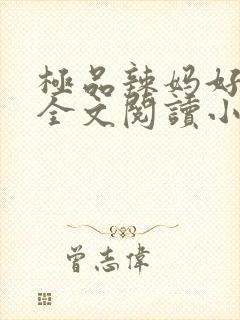 極品辣妈好
全文閱讀小
曾志偉